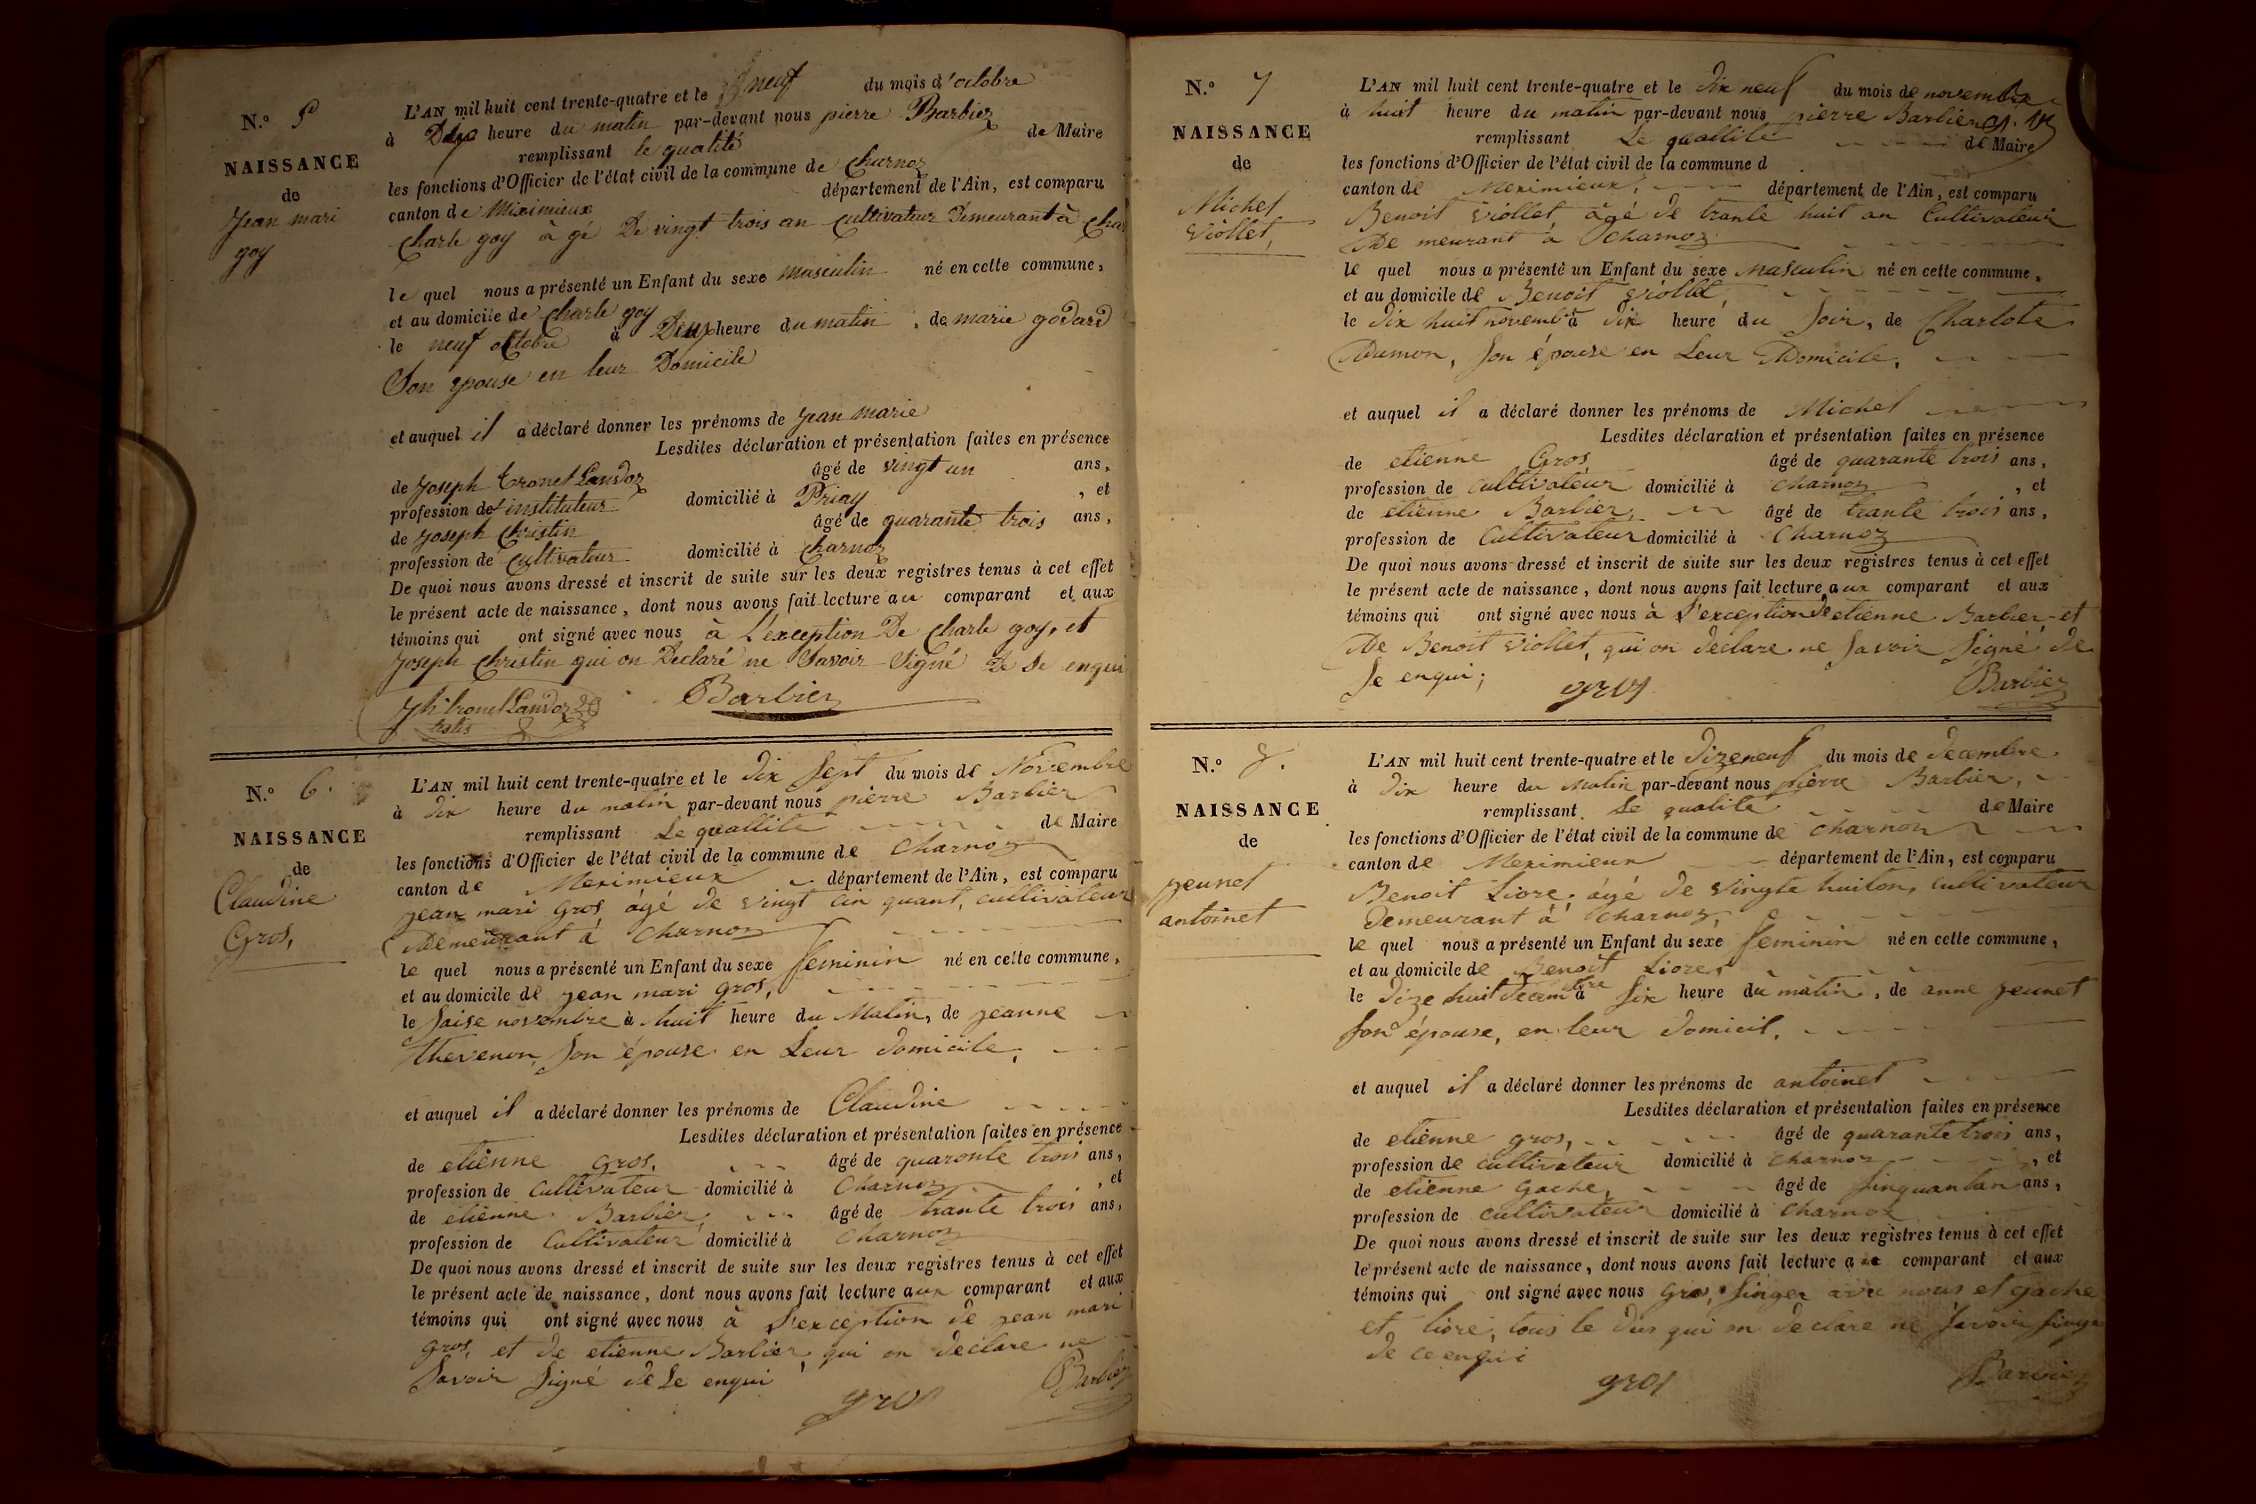 N.o 5
NAISSANCE
de
Jean mari
goy
L'AN mil huit cent trente-quatre et le neuf du mois d'octobre
à heure du matin par-devant nous pierre Barbier
remplissant le qualité de Maire
les fonctions d'Officier de l'état civil de la commune de Charnoz
canton de Miximieux département de l'Ain, est comparu
Charle goy à gé De vingt trois an Cultivateur Demeurant à Char
le quel nous a présenté un Enfant du sexe masculin né en cette commune,
et au domicile de Charle goy
le neuf octobre à Deux heure du matin, de marie godard
Son epouse en leur Domicile
et auquel il a déclaré donner les prénoms de Jean marie
Lesdites déclaration et présentation faites en présence
de Joseph tronel Landoz âgé de vingt un ans,
profession de instituteur domicilié à Priay, et
de Joseph Christin âgé de quarante trois ans,
profession de Cultivateur domicilié à Charnoz
De quoi nous avons dressé et inscrit de suite sur les deux registres tenus à cet effet
le présent acte de naissance, dont nous avons fait lecture au comparant et aux
témoins qui ont signé avec nous à L'exception De Charle goy, et
Joseph Christin qui on Declaré ne Savoir Signé De Se enqui
Jh tronel Landoz Barbier
N.o 6.
NAISSANCE
de
Claudine
Gros,
L'AN mil huit cent trente-quatre et le dix sept du mois de Novembre
à dix heure du matin par-devant nous pierre Barbier
remplissant Le quallité de Maire
les fonctions d'Officier de l'état civil de la commune de Charnoz
canton de Meximieux département de l'Ain, est comparu
jean mari gros, âgé de vingt cin quant, cultivateur
Demeurant á Charnoz
le quel nous a présenté un Enfant du sexe feminin né en cette commune,
et au domicile de jean mari gros,
le saise novembre à huit heure du Matin, de jeanne
thevenon, son épouse en Leur domicile,
et auquel il a déclaré donner les prénoms de Claudine
Lesdites déclaration et présentation faites en présence
de etienne gros, âgé de quaronte trois ans,
profession de Cultivateur domicilié à Charnoz, et
de etienne Barbier, âgé de trante trois ans,
profession de Cultivateur domicilié à Charnoz
De quoi nous avons dressé et inscrit de suite sur les deux registres tenus à cet effet
le présent acte de naissance, dont nous avons fait lecture aux comparant et aux
témoins qui ont signé avec nous à L'exception de jean mari
gros, et de etienne Barbier qui on déclare ne
Savoir Signé de Le enqui
gros Barbier
N.o 7
NAISSANCE
de
Michel
Viollet,
L'AN mil huit cent trente-quatre et le dix neuf du mois de novembre
à huit heure du matin par-devant nous pierre Barbier
remplissant Le quallité de Maire
les fonctions d'Officier de l'état civil de la commune d
canton de Meximieux, département de l'Ain, est comparu
Benoit Viollet, âgé de trante huit an Cultivateur
De meurant à Charnoz
le quel nous a présenté un Enfant du sexe Masculin né en cette commune,
et au domicile de Benoit Viollet,
le dix huit novemb à dix heure du Soir, de Charlote
Dumon, son épouse en Leur Domicile,
et auquel il a déclaré donner les prénoms de Michel
Lesdites déclaration et présentation faites en présence
de etienne Gros âgé de quarante trois ans,
profession de Cultivateur domicilié à Charnoz, et
de etienne Barbier, âgé de trante trois ans,
profession de Cultivateur domicilié à Charnoz
De quoi nous avons dressé et inscrit de suite sur les deux registres tenus à cet effet
le présent acte de naissance, dont nous avons fait lecture aux comparant et aux
témoins qui ont signé avec nous à L'exception de etienne Barbier et
De Benoit Viollet, qui on déclare ne Savoir Signé de
Se enqui;
gros Barbier
N.o 8.
NAISSANCE
de
jeunet
antoinet
L'AN mil huit cent trente-quatre et le dizeneuf du mois de decembre
à dix heure du Matin par-devant nous pierre Barbier,
remplissant Le qualité de Maire
les fonctions d'Officier de l'état civil de la commune de Charnoz
canton de Meximieux département de l'Ain, est comparu
Benoit Liore, ágé de Vingte huiton, cultivateur
Demeurant á Charnoz,
le quel nous a présenté un Enfant du sexe feminin né en cette commune,
et au domicile de Benoit Liore,
le dize huit décembre à six heure du matin, de anne jeunet
son épouse, en leur domicil,
et auquel il a déclaré donner les prénoms de antoinet
Lesdites déclaration et présentation faites en présence
de etienne gros, âgé de quarante trois ans,
profession de cultivateur domicilié à Charnoz, et
de etienne gache, âgé de sinquantan ans,
profession de cultivateur domicilié à Charnoz
De quoi nous avons dressé et inscrit de suite sur les deux registres tenus à cet effet
le présent acte de naissance, dont nous avons fait lecture a comparant et aux
témoins qui ont signé avec nous gros, singer avec nous et gache
et liore, tous le dus qui on declare ne savoir singe
de ce enqui
gros Barbier